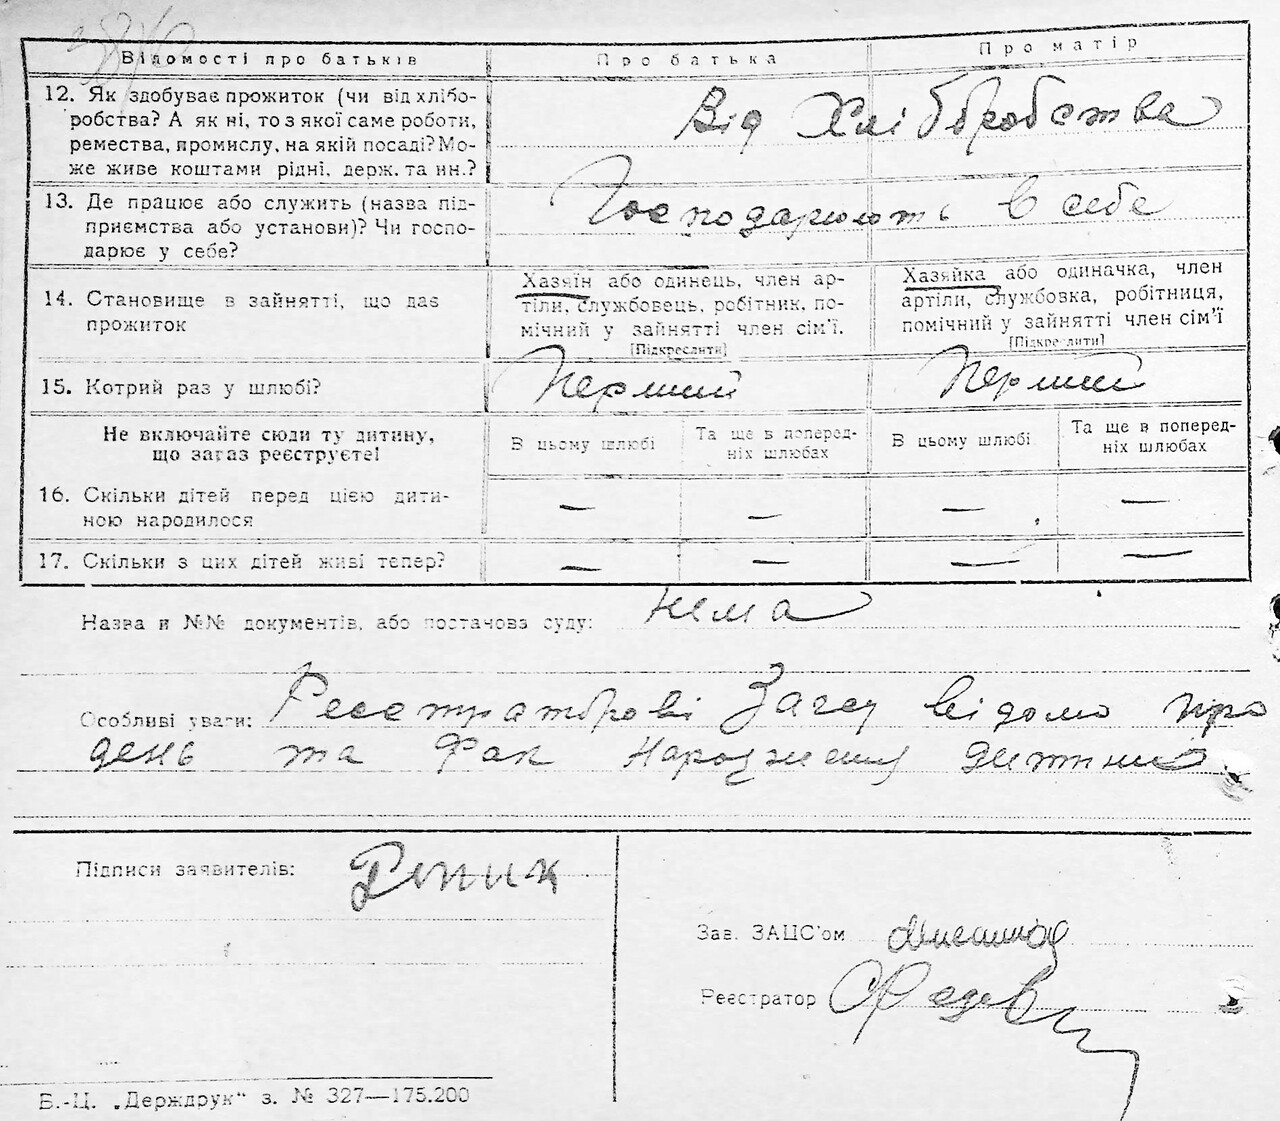 Відомості про батьків Про батька Про матір
12. Як здобуває прожиток (чи від хлібо-
робства? А як ні, то з якої саме роботи,
ремества, промислу, на якій посаді? Мо-
же живе коштами рідні, держ. та ин.?
Від Хліборобства
13. Де працює або служить (назва під-
приємства або установи)? Чи госпо-
дарює у себе?
Господарюють в себе
14. Становище в зайнятті, що дає
прожиток
Хазяїн або одинець, член ар-
тіли, службовець, робітник, по-
мічний у зайнятті член сім'ї.
[Підкреслити]
Хазяйка або одиначка, член
артіли, службовка, робітниця,
помічний у зайнятті член сім'ї
[Підкреслити]
15. Котрий раз у шлюбі? Перший Перший
Не включайте сюди ту дитину,
що зараз реєструєте!
В цьому шлюбі
Та ще в поперед-
ніх шлюбах
В цьому шлюбі
Та ще в поперед-
ніх шлюбах
16. Скільки дітей перед цією дити-
ною народилося
— — — —
17. Скільки з цих дітей живі тепер? — — — —
Назва й №№ документів, або постанова суду: Нема
Особливі уваги: Реєстраторові Загсу відомо про
день та Фак Народження дитини
Підписи заявителів: Репик
Зав. ЗАЦС'ом
Реєстратор
Б.-Ц. „Держдрук" з. № 327—175.200